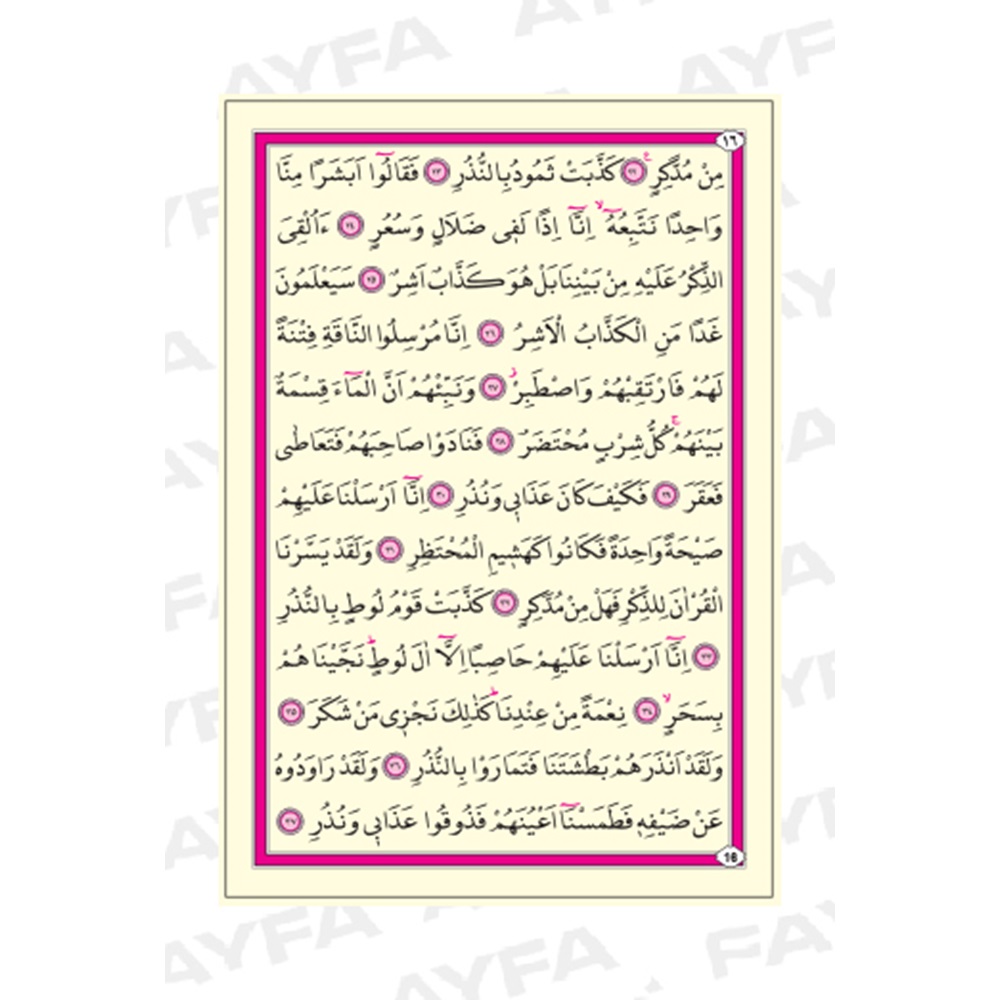 AYFA AYFA AYFA
١٦
مِنْ مُدَّكِرٍ ﴿٢٢﴾ كَذَّبَتْ ثَمُودُ بِالنُّذُرِ ﴿٢٣﴾ فَقَالُٓوا اَبَشَرًا مِنَّا
وَاحِدًا نَتَّبِعُهُٓۙ اِنَّٓا اِذًا لَف۪ى ضَلَالٍ وَسُعُرٍ ﴿٢٤﴾ ءَاُلْقِىَ
الذِّكْرُ عَلَيْهِ مِنْ بَيْنِنَا بَلْ هُوَ كَذَّابٌ اَشِرٌ ﴿٢٥﴾ سَيَعْلَمُونَ
غَدًا مَنِ الْكَذَّابُ الْاَشِرُ ﴿٢٦﴾ اِنَّا مُرْسِلُوا النَّاقَةِ فِتْنَةً
لَهُمْ فَارْتَقِبْهُمْ وَاصْطَبِرْۘ ﴿٢٧﴾ وَنَبِّئْهُمْ اَنَّ الْمَٓاءَ قِسْمَةٌ
بَيْنَهُمْۚ كُلُّ شِرْبٍ مُحْتَضَرٌ ﴿٢٨﴾ فَنَادَوْا صَاحِبَهُمْ فَتَعَاطٰى
فَعَقَرَ ﴿٢٩﴾ فَكَيْفَ كَانَ عَذَاب۪ى وَنُذُرِ ﴿٣٠﴾ اِنَّٓا اَرْسَلْنَا عَلَيْهِمْ
صَيْحَةً وَاحِدَةً فَكَانُوا كَهَش۪يمِ الْمُحْتَظِرِ ﴿٣١﴾ وَلَقَدْ يَسَّرْنَا
الْقُرْاٰنَ لِلذِّكْرِ فَهَلْ مِنْ مُدَّكِرٍ ﴿٣٢﴾ كَذَّبَتْ قَوْمُ لُوطٍ بِالنُّذُرِ
﴿٣٣﴾ اِنَّٓا اَرْسَلْنَا عَلَيْهِمْ حَاصِبًا اِلَّٓا اٰلَ لُوطٍۜ نَجَّيْنَاهُمْ
بِسَحَرٍۙ ﴿٣٤﴾ نِعْمَةً مِنْ عِنْدِنَاۜ كَذٰلِكَ نَجْز۪ى مَنْ شَكَرَ ﴿٣٥﴾
وَلَقَدْ اَنْذَرَهُمْ بَطْشَتَنَا فَتَمَارَوْا بِالنُّذُرِ ﴿٣٦﴾ وَلَقَدْ رَاوَدُوهُ
عَنْ ضَيْفِه۪ فَطَمَسْنَٓا اَعْيُنَهُمْ فَذُوقُوا عَذَاب۪ى وَنُذُرِ ﴿٣٧﴾
16
AYFA AYFA